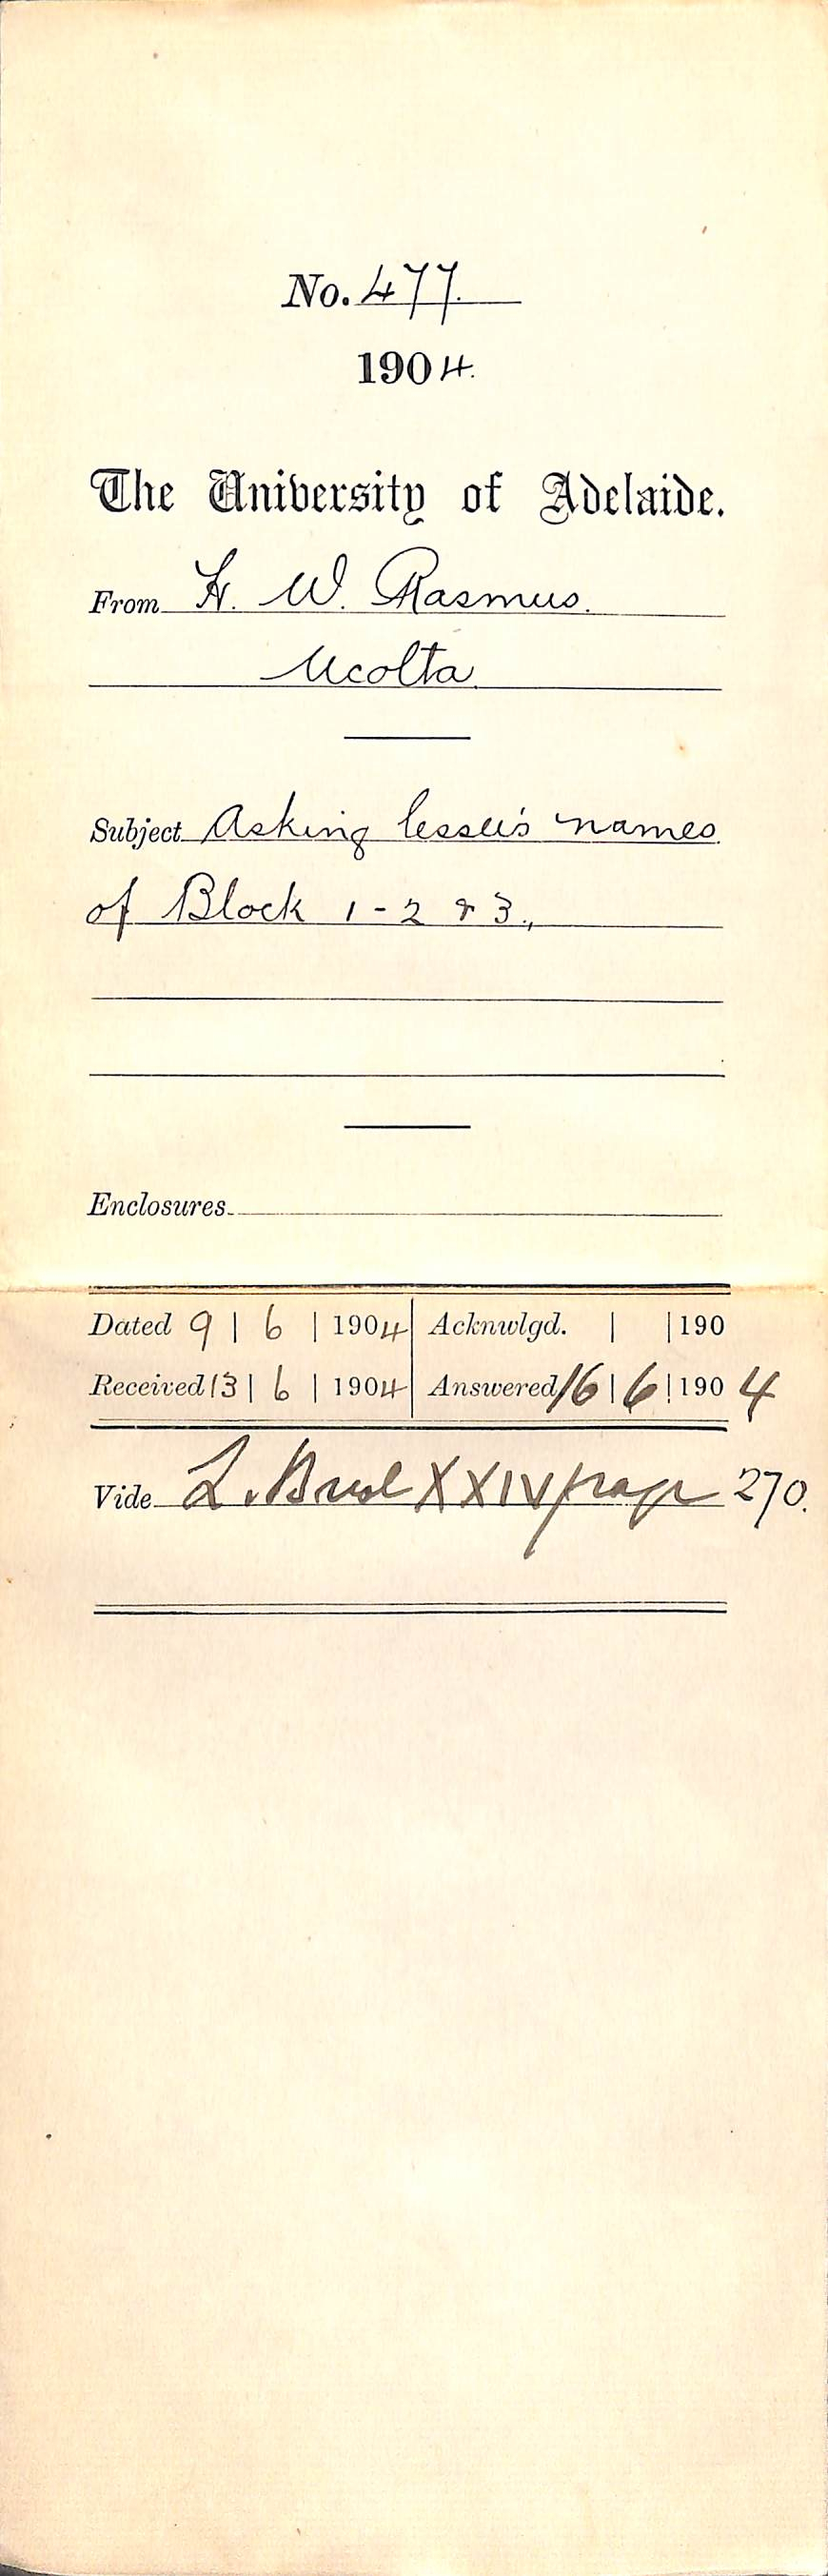 No. 477.
1904.
The University of Adelaide.
From W. Rasmus.
Ucolta
Subject Asking lessee's names
of Block 1 - 2 & 3.,
Enclosures
Dated 9 | 6 | 1904 Acknwlgd. | | 190
Received 13 | 6 | 1904 Answered 16 | 6 | 1904
Vide L. Book XXIV page 270.